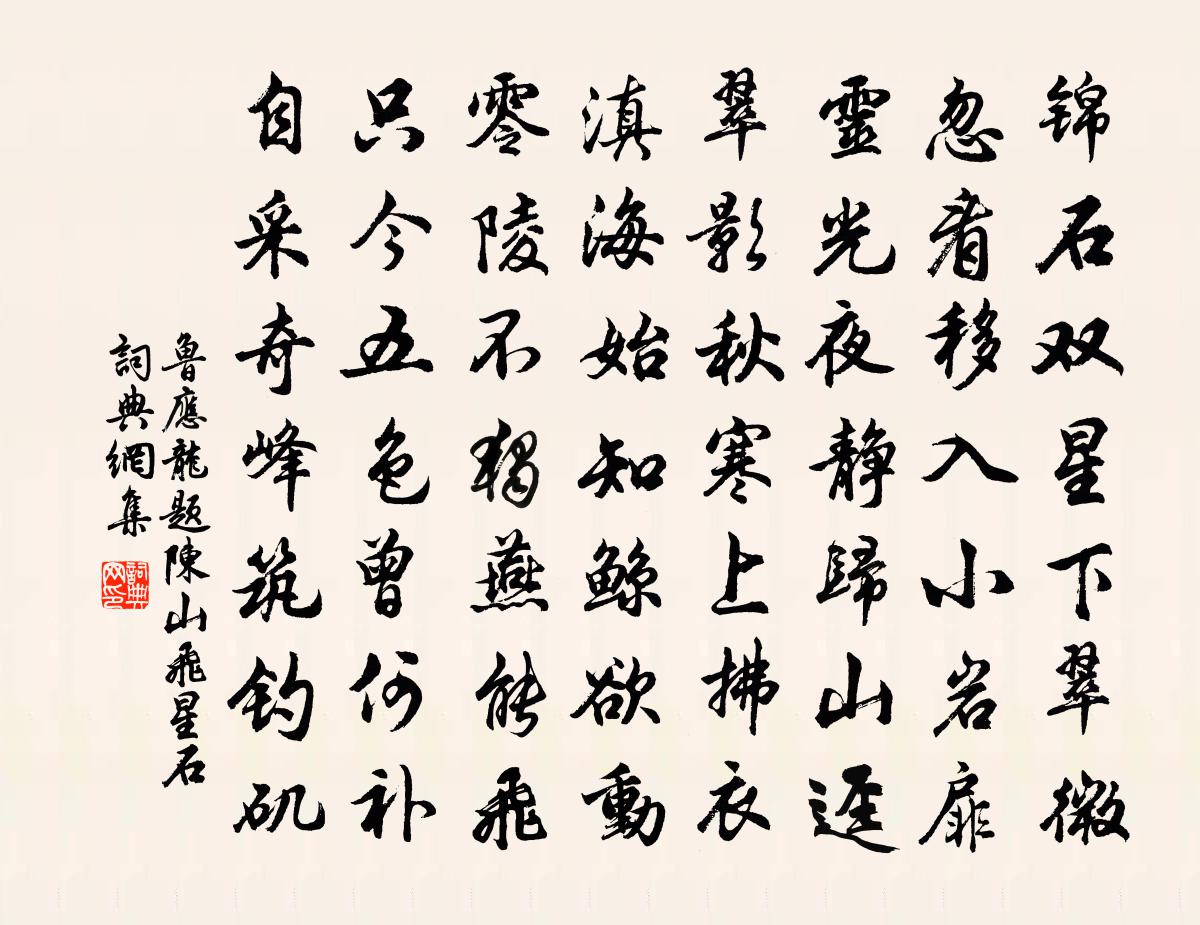 锦石双星下翠微
忽看移入小岩扉
靈光夜静歸山迳
翠影秋寒上拂衣
滇海始知鲸欲動
零陵不独燕能飛
只今五色曾何补
自采奇峰筑钓矶
魯應龍題陳山飛星石
詞典網集
詞典网印